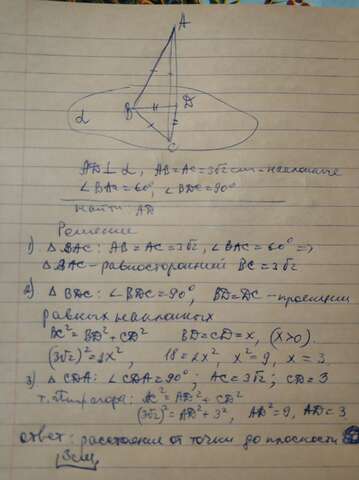 A
α
B
D
C
AD⊥α, AB=AC=3√2 cm - наклонные
∠BAC=60°, ∠BDC=90°
Найти AD
Решение
1) △BAC: AB=AC=3√2, ∠BAC=60° =>
△BAC - равносторонний BC=3√2
2) △BDC: ∠BDC=90°, BD=DC - проекции
равных наклонных
BC²=BD²+CD² BD=CD=x, (x>0)
(3√2)²=2x², 18=2x², x²=9, x=3
3) △CDA: ∠CDA=90°; AC=3√2; CD=3
т. Пифагора: AC²=AD²+CD²
(3√2)²=AD²+3², AD²=9, AD=3
Ответ: расстояние от точки до плоскости
3см